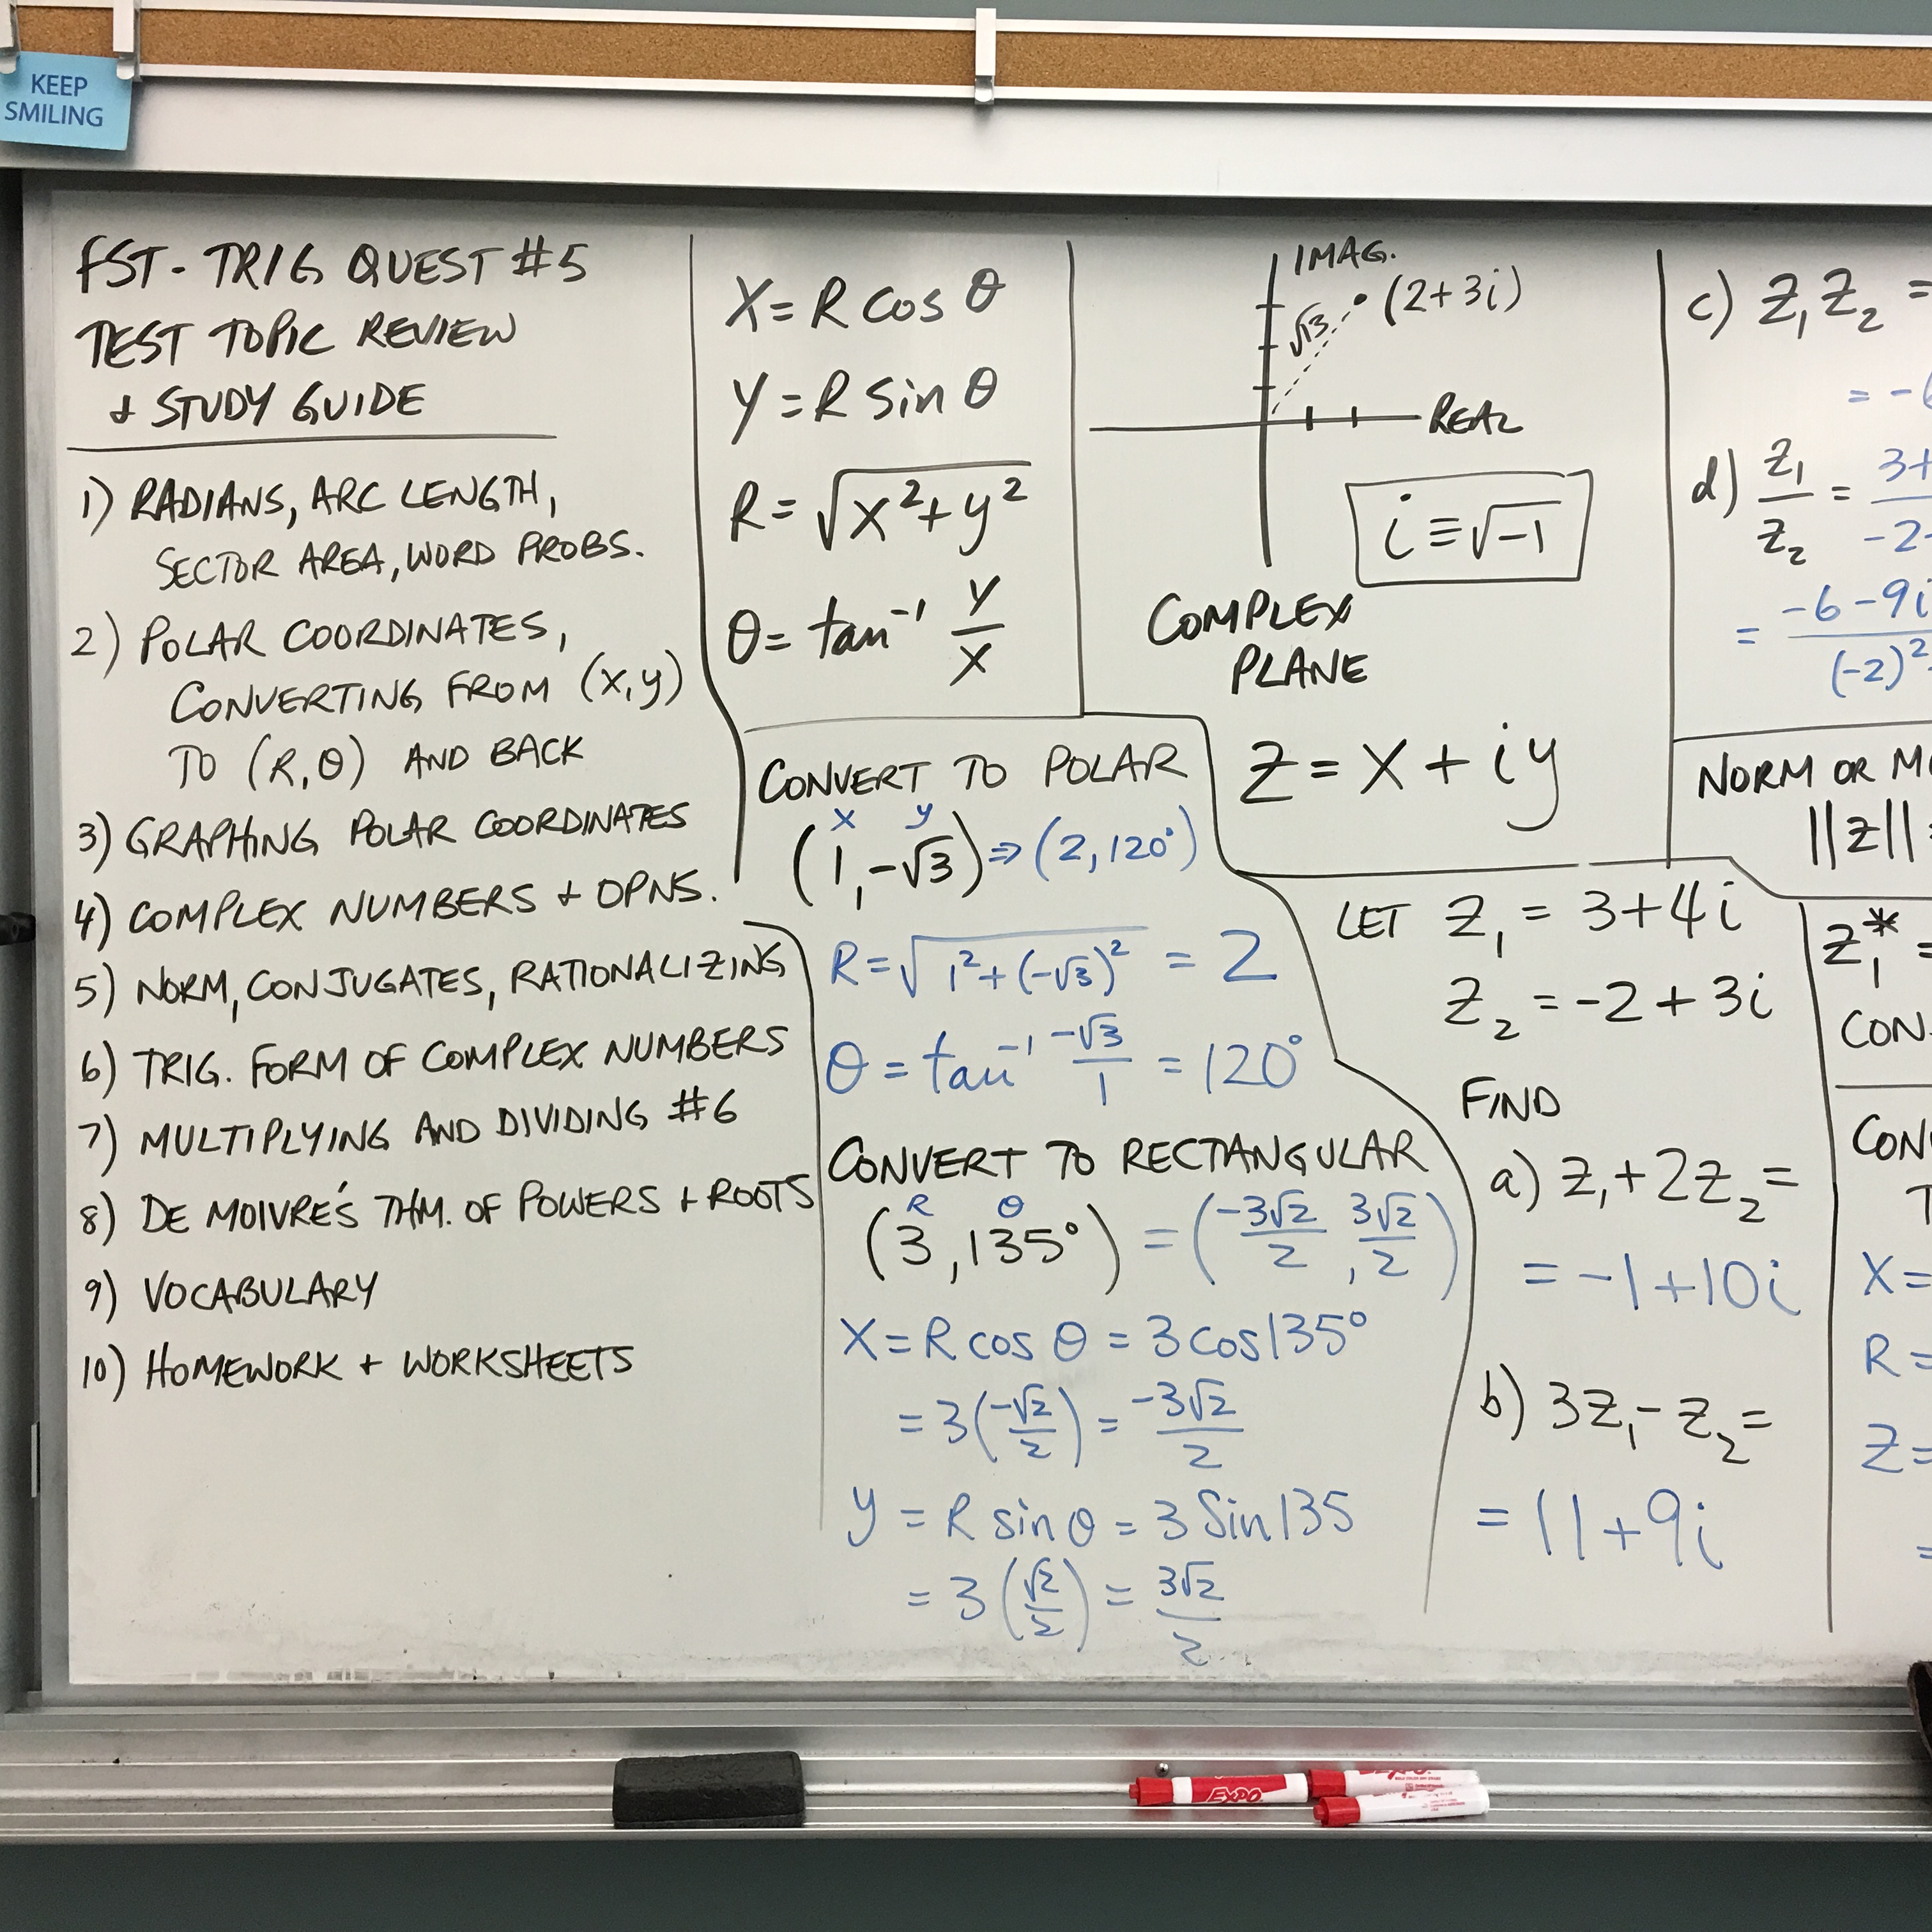 KEEP
SMILING
FST - TRIG QUEST #5
TEST TOPIC REVIEW
+ STUDY GUIDE
1) RADIANS, ARC LENGTH,
SECTOR AREA, WORD PROBS.
2) POLAR COORDINATES,
CONVERTING FROM (X,y)
TO (R,θ) AND BACK
3) GRAPHING POLAR COORDINATES
4) COMPLEX NUMBERS + OPNS.
5) NORM, CONJUGATES, RATIONALIZING
6) TRIG. FORM OF COMPLEX NUMBERS
7) MULTIPLYING AND DIVIDING #6
8) DE MOIVRE'S THM. OF POWERS + ROOTS
9) VOCABULARY
10) HOMEWORK + WORKSHEETS
X = R cos θ
Y = R sin θ
R = √(x²+y²)
θ = tan⁻¹ y/x
CONVERT TO POLAR
x y
(1, -√3) ⇒ (2, 120°)
R = √(1²+(-√3)²) = 2
θ = tan⁻¹ -√3/1 = 120°
CONVERT TO RECTANGULAR
R θ
(3, 135°) = (-3√2/2, 3√2/2)
X = R cos θ = 3 cos 135°
= 3(-√2/2) = -3√2/2
y = R sin θ = 3 Sin 135
= 3(√2/2) = 3√2/2
IMAG.
√13 (2+3i)
REAL
i ≡ √-1
COMPLEX
PLANE
Z = X + iy
LET Z₁ = 3+4i
Z₂ = -2+3i
FIND
a) Z₁+2Z₂ =
= -1+10i
b) 3Z₁-Z₂ =
= 11+9i
c) Z₁Z₂ =
= -
d) Z₁/Z₂ = 3+/-2-
= -6-9i/(-2)²
NORM OR M
||Z||
Z₁* =
CON
CON
X =
R =
Z =
=
EXPO